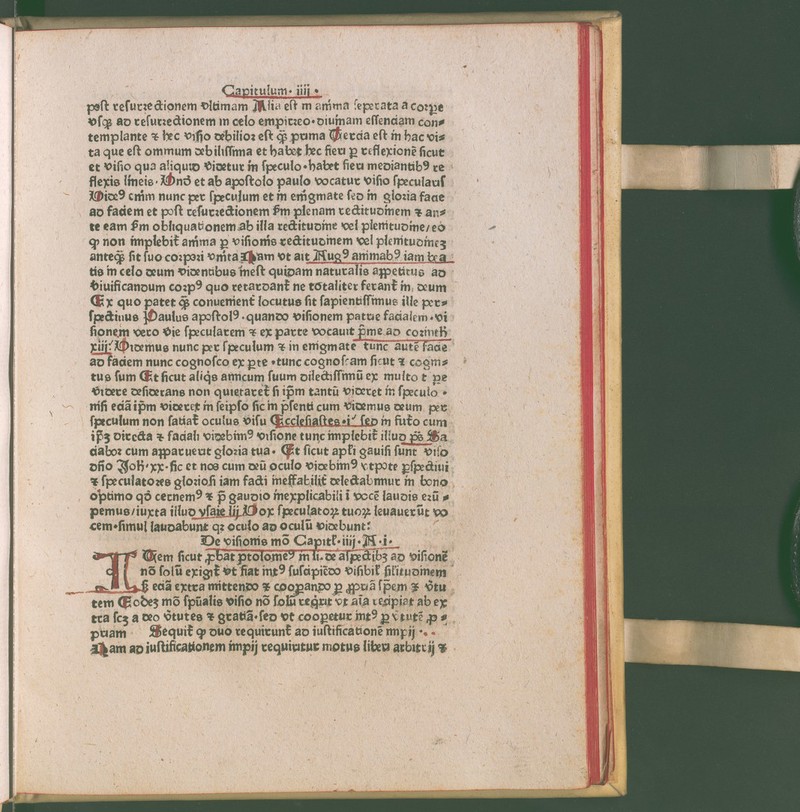 Capitulum· iiij ·
post resurrectionem vltimam Alia est in anima seperata a corpore
vsqꝫ ad resurrectionem in celo empirreo·diuinam essenciam con-
templante ⁊ hec visio debilior est qȝ prima Tercia est in hac vi-
ta que est omnium debilissima et habet hec fieri ꝑ reflexionē sicut
et visio qua aliquid videtur in speculo·habet fieri mediantibꝰ re
flexis lineis·Vn̄ et ab apostolo paulo vocatur visio specularis
Videꝰ enim nunc per speculum et in enigmate sed in gloria facie
ad faciem et post resurrectionem ẜm plenam rectitudinem ⁊ an-
te eam ẜm obliquationem ab illa rectitudine vel plenitudine/eo
ꝙ non implebit̄ anima ꝑ visionis rectitudinem vel plenitudineȝ
anteqȝ sit suo corpori vnita Nam vt ait Augꝰ animabꝰ iam bea
tis in celo deum videntibus inest quidam naturalis appetitus ad
viuificandum corpꝰ quo retardant̄ ne totaliter ferant̄ in deum
Ex quo patet qȝ conuenient̄ locutus sit sapientissimus ille per-
spectiuus Paulus apostolꝰ·quando visionem patrie facialem·vi
sionem vero vie specularem ⁊ ex parte vocauit p̄me ad corinth
xiij·Videmus nunc per speculum ⁊ in enigmate tunc autē facie
ad faciem nunc cognosco ex ꝑte·tunc cognoscam sicut ⁊ cogni-
tus sum Et sicut aliqs amicum suum dilectissimū ex multo t ꝑe
videre desiderans non quietaret̄ si ip̄m tantū videret in speculo·
nisi eciā ip̄m videret in seipso sic in p̄senti cum videmus deum per
speculum non satiat̄ oculus visu Ecclesiastes·i· sed in futo cum
ip̄ȝ directa ⁊ faciali videbimꝰ visione tunc implebit̄ illud p̄s Sa
ciabor cum apparuerut gloria tua· Et sicut apl̄i gauisi sunt viso
dn̄o Joh·xx·sic et nos cum deū oculo videbimꝰ vtpote ꝑspectiui
⁊ speculatores gloriosi iam facti ineffabilit̄ delectabimur in bono
optimo qd̄ cernemꝰ ⁊ p̄ gaudio inexplicabili ī vocē laudis erū-
pemus/iuxta illud ysaie lij Vox speculatoꝝ tuoꝝ leuauerūt vo
cem·simul laudabunt qꝛ oculo ad oculū videbunt·
De visionis mō Capitl̄·iiij·N·i·
ITem sicut ꝓbat ptolomeꝰ in li. de aspectibꝫ ad visionē
nō solū exigit̄ vt fiat int̄ꝰ suscipiēdo visibil̄ sil̄itudinem
ẜ eciā extra mittendo ⁊ coopando ꝑ ꝓpriā sp̄em ⁊ v̄tu
tem Eodeȝ mō sp̄ualis visio nō solū reqrit vt aīa recipiat ab ex
tra scȝ a deo v̄tutes ⁊ gratiā·sed vt coopetur int̄ꝰ ꝑ v̄tutē ꝓ-
priam Sequit̄ ꝙ duo requirunt̄ ad iustificationē impij ·
Nam ad iustificationem impij requiritur motus liberi arbitrij ⁊